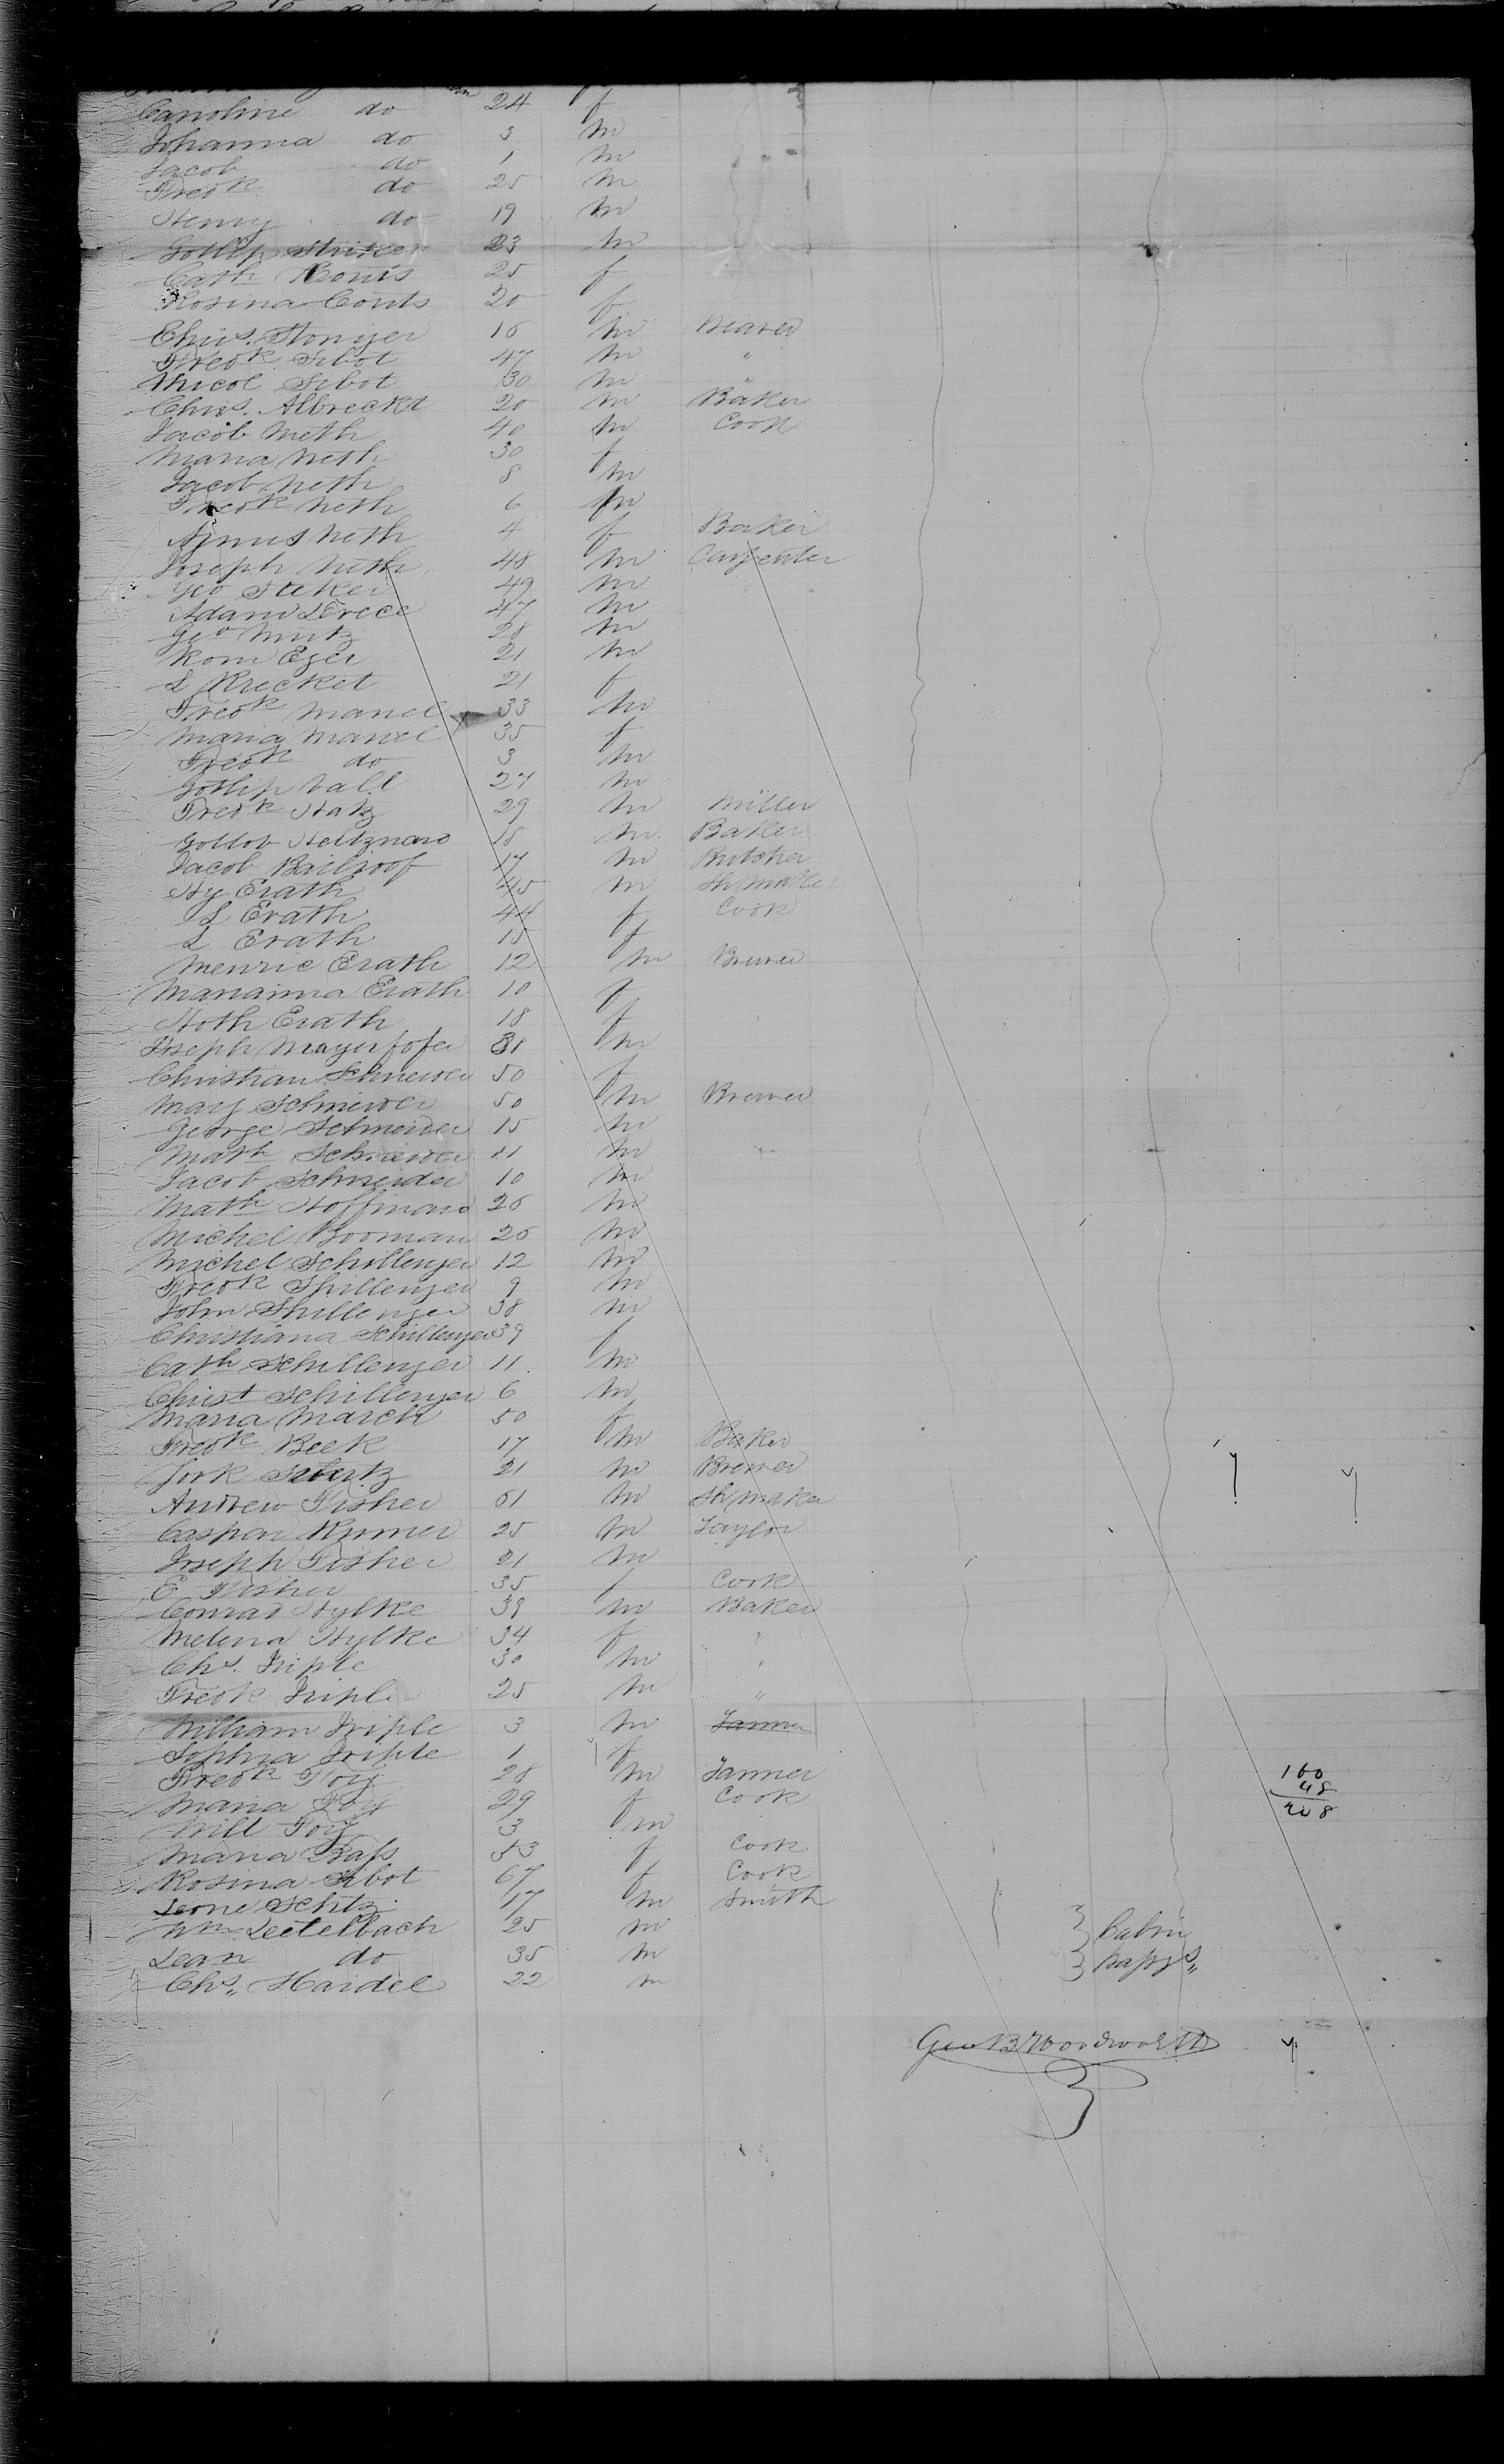 Caroline do 24 f
Johanna do 3 m
Jacob do 1 m
Fredk do 25 m
Henry do 19 m
Gotlip Striker 23 m
Cath Conts 25 f
Rosina Conts 20 f
Chris. Stonger 16 m
Fredk Sibot 47 m "
Nicol Sibot 30 m "
Chris. Albreckt 20 m Baker
Jacob Neth 40 m Cook
Maria Neth 30 f
Jacob Neth 8 m
Fredk Neth 6 m
Agnus Neth 4 f Baker
Joseph Neth 48 m Carpenter
Geo Steker 49 m
Adam 47 m
Geo Mutz 28 m
Rom Eger 21 m
L Krecket 21 f
Fredk Manel 33 m
Maria Manel 35 f
Fredk do 3 m
Gotlip Vall 27 m
Fredk Statz 29 m Miller
Gottob 18 m Baker
Jacob Bailroof 17 m Butcher
Hy Erath 45 m Sh maker
L Erath 44 f Cook
L Erath 15 f
Menric Erath 12 m Brewer
Marianna Erath 10 f
Hoth Erath 18 f
Joseph Mayerfofer 31 m
Christian Schneider 50 f
Mary Schneider 50 m Brewer
George Schneider 15 m
Math Schneider 11 m
Jacob Schneider 10 m
Math Hoffman 26 m
Michel Booman 26 m
Michel Schillenger 12 m
Fredk Shillenger 9 m
John Shillenger 38 m
Christiana Schillenger 39 f
Cath Schillenger 11 m
Christ Schillenger 6 m
Maria March 50 f
Fredk Beek 17 m Baker
Jork 21 m Brewer
Andrew Fisher 61 m Sh maker
Caspar Rymer 25 m Taylor
Joseph Fisher 21 m
E Fisher 35 f Cook
Conrad Hylke 39 m Baker
Melina Hylke 34 f "
Chs. Triple 30 m "
Fredk Triple 25 m "
William Triple 3 m Tanner
Sophia Triple 1 f
Fredk Foy 28 m Tanner
Maria Foy 29 f Cook
Will Foy 3 m
Maria Bass 53 f Cook
Rosina Sibot 67 f Cook
Leone Schtz 17 m Smith
Wm Leetelbach 25 m
Lean do 35 m
Chs. Hardel 22 m
160
48
208
Cabin
passgs
Geo B Woodworth